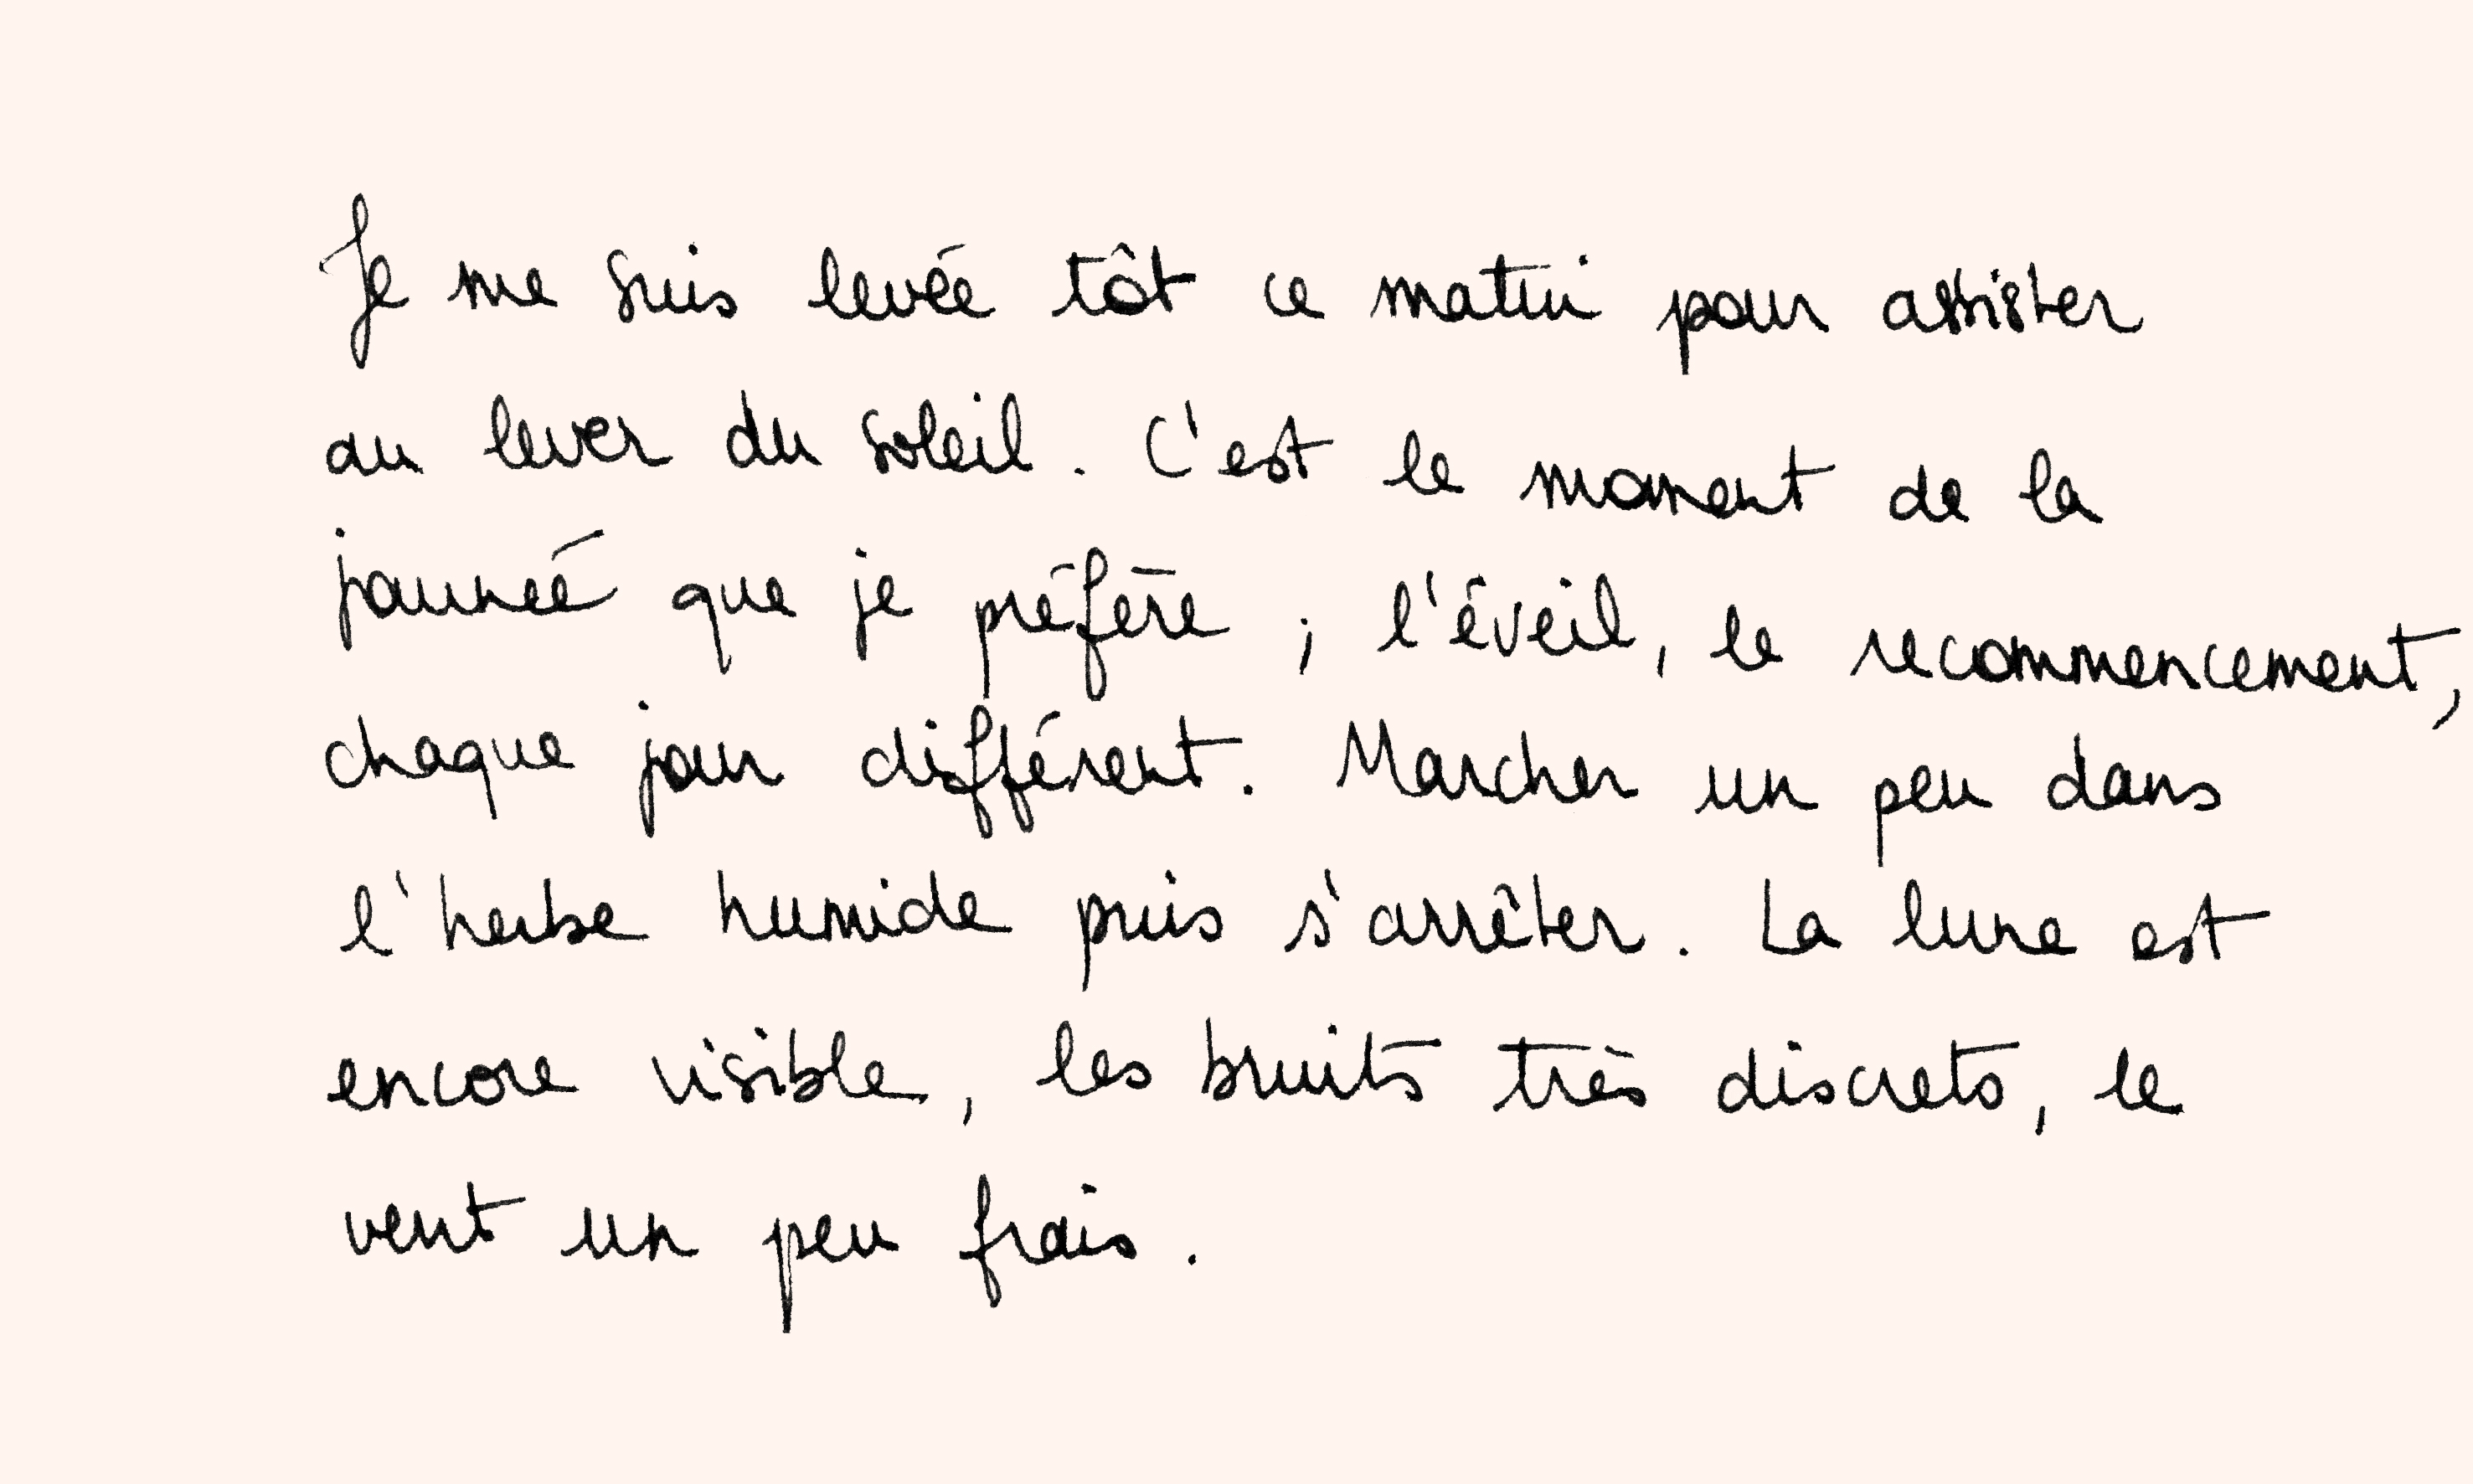 Je me suis levée tôt ce matin pour assister
au lever du soleil. C'est le moment de la
journée que je préfère ; l'éveil, le recommencement,
chaque jour différent. Marcher un peu dans
l'herbe humide puis s'arrêter. La lune est
encore visible, les bruits très discrets, le
vent un peu frais.